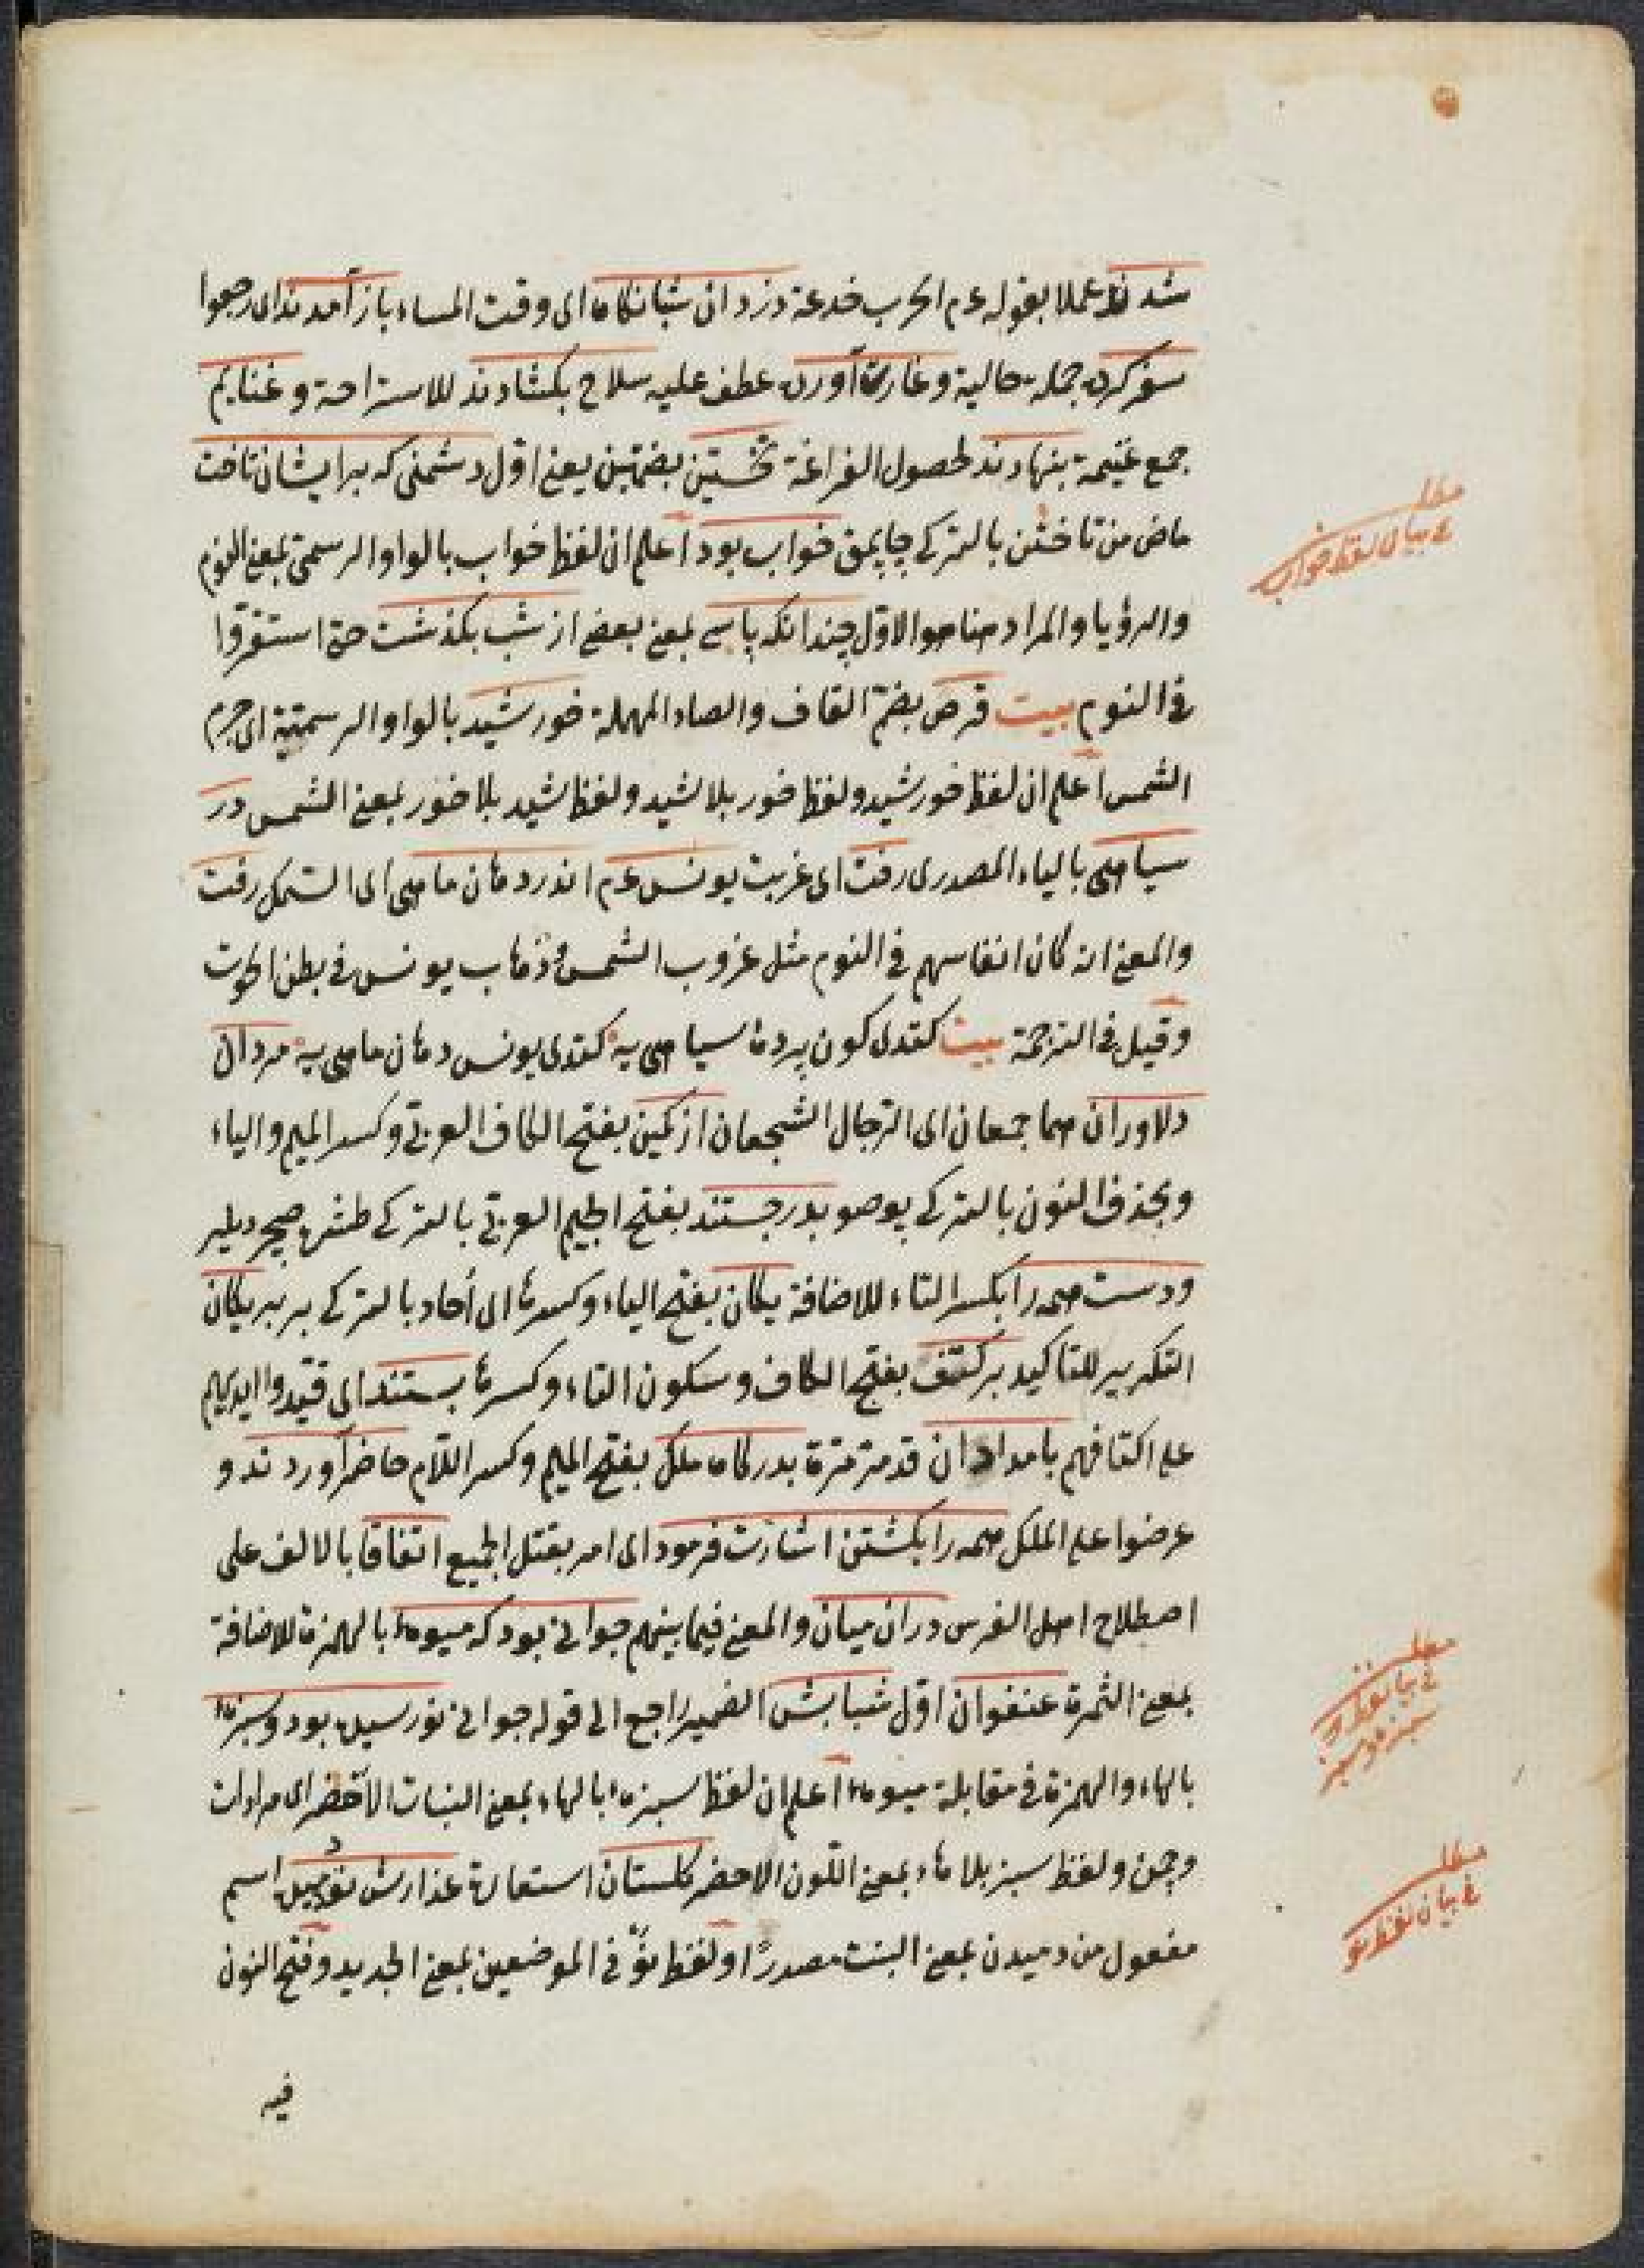 شدند عملا بقوله عم الحرب خدعة دزدان شبانكاه الى وقت المساء باز آمدند اى رجعوا
سفر كرده جمله حالية وغارت آورده عطف عليه سلاح بكشادند للاستراحة وغنايم
جمع غنيمة بنهادند لحصول الفراغة نخستين بضمتين يعنى اول دشمنى كه بر ايشان تاخت
ماض من تاختن بالتركى چاپمق خواب بود اعلم ان لفظ خواب بالواو الرسمى بمعنى النوم
والرؤيا والمراد هنا هو الاول چندانكه پاسى بمعنى بعض از شب بكذشت حتى استغرقوا
فى النوم بيت قرص بضم القاف والصاد المهملة خورشيد بالواو الرسمية اى جرم
الشمس اعلم ان لفظ خورشيد ولفظ خور بلا شيد ولفظ شيد بلا خور بمعنى الشمس در
سياهى بالياء المصدرى رفت اى غربت يونس عم اندر دهان ماهى اى السمك رفت
والمعنى انه كان انفاسهم فى النوم مثل غروب الشمس وذهاب يونس فى بطن الحوت
وقيل فى الترجمة بيت كتدى كون پرده سياهى يه كتدى يونس دهان ماهى يه مردان
دلاوران هما جمعان اى الرجال الشجعان از كمين بفتح الكاف العربى وكسر الميم والياء
وبحذف النون بالتركى پوصو بدر جستند بفتح الجيم العربى بالتركى طشره صچرديلر
ودست همه را بكسر التاء للاضافة يكان بفتح الياء وكسرها اى أحاد بالتركى برير يكان
التكرير للتاكيد بر كتف بفتح الكاف وسكون التاء وكسرها بستند اى قيدوا ايديهم
على اكتافهم بامدادان قد مر مرة بدركاه ملك بفتح الميم وكسر اللام حاضر آوردند و
عرضوا على الملك همه را بكشتن اشارت فرمود اى امر بقتل الجميع اتفاقا بالالف على
اصطلاح اهل الفرس دران ميان والمعنى فيما بينهم جوانى بود كه ميوهٔ بالهمزة للاضافة
بمعنى الثمرة عنفوان اول شبابش الضمير راجع الى قوله جوانى نورسيده بود وسبزهٔ
بالهاء والهمزة فى مقابلة ميوهٔ اعلم ان لفظ سبزه بالهاء بمعنى النبات الاخضر اى
وچمن ولفظ سبز بلا هاء بمعنى اللون الاخضر كلستان استعارة عذارش نودميده اسم
مفعول من دميدن بمعنى النبت مصدرا ولفظ نو فى الموضعين بمعنى الجديد وفتح النون
فيه
مطلب
فى بيان لفظ خواب
مطلب
فى بيان لفظ
سبزه وسبز
مطلب
فى بيان لفظ نو